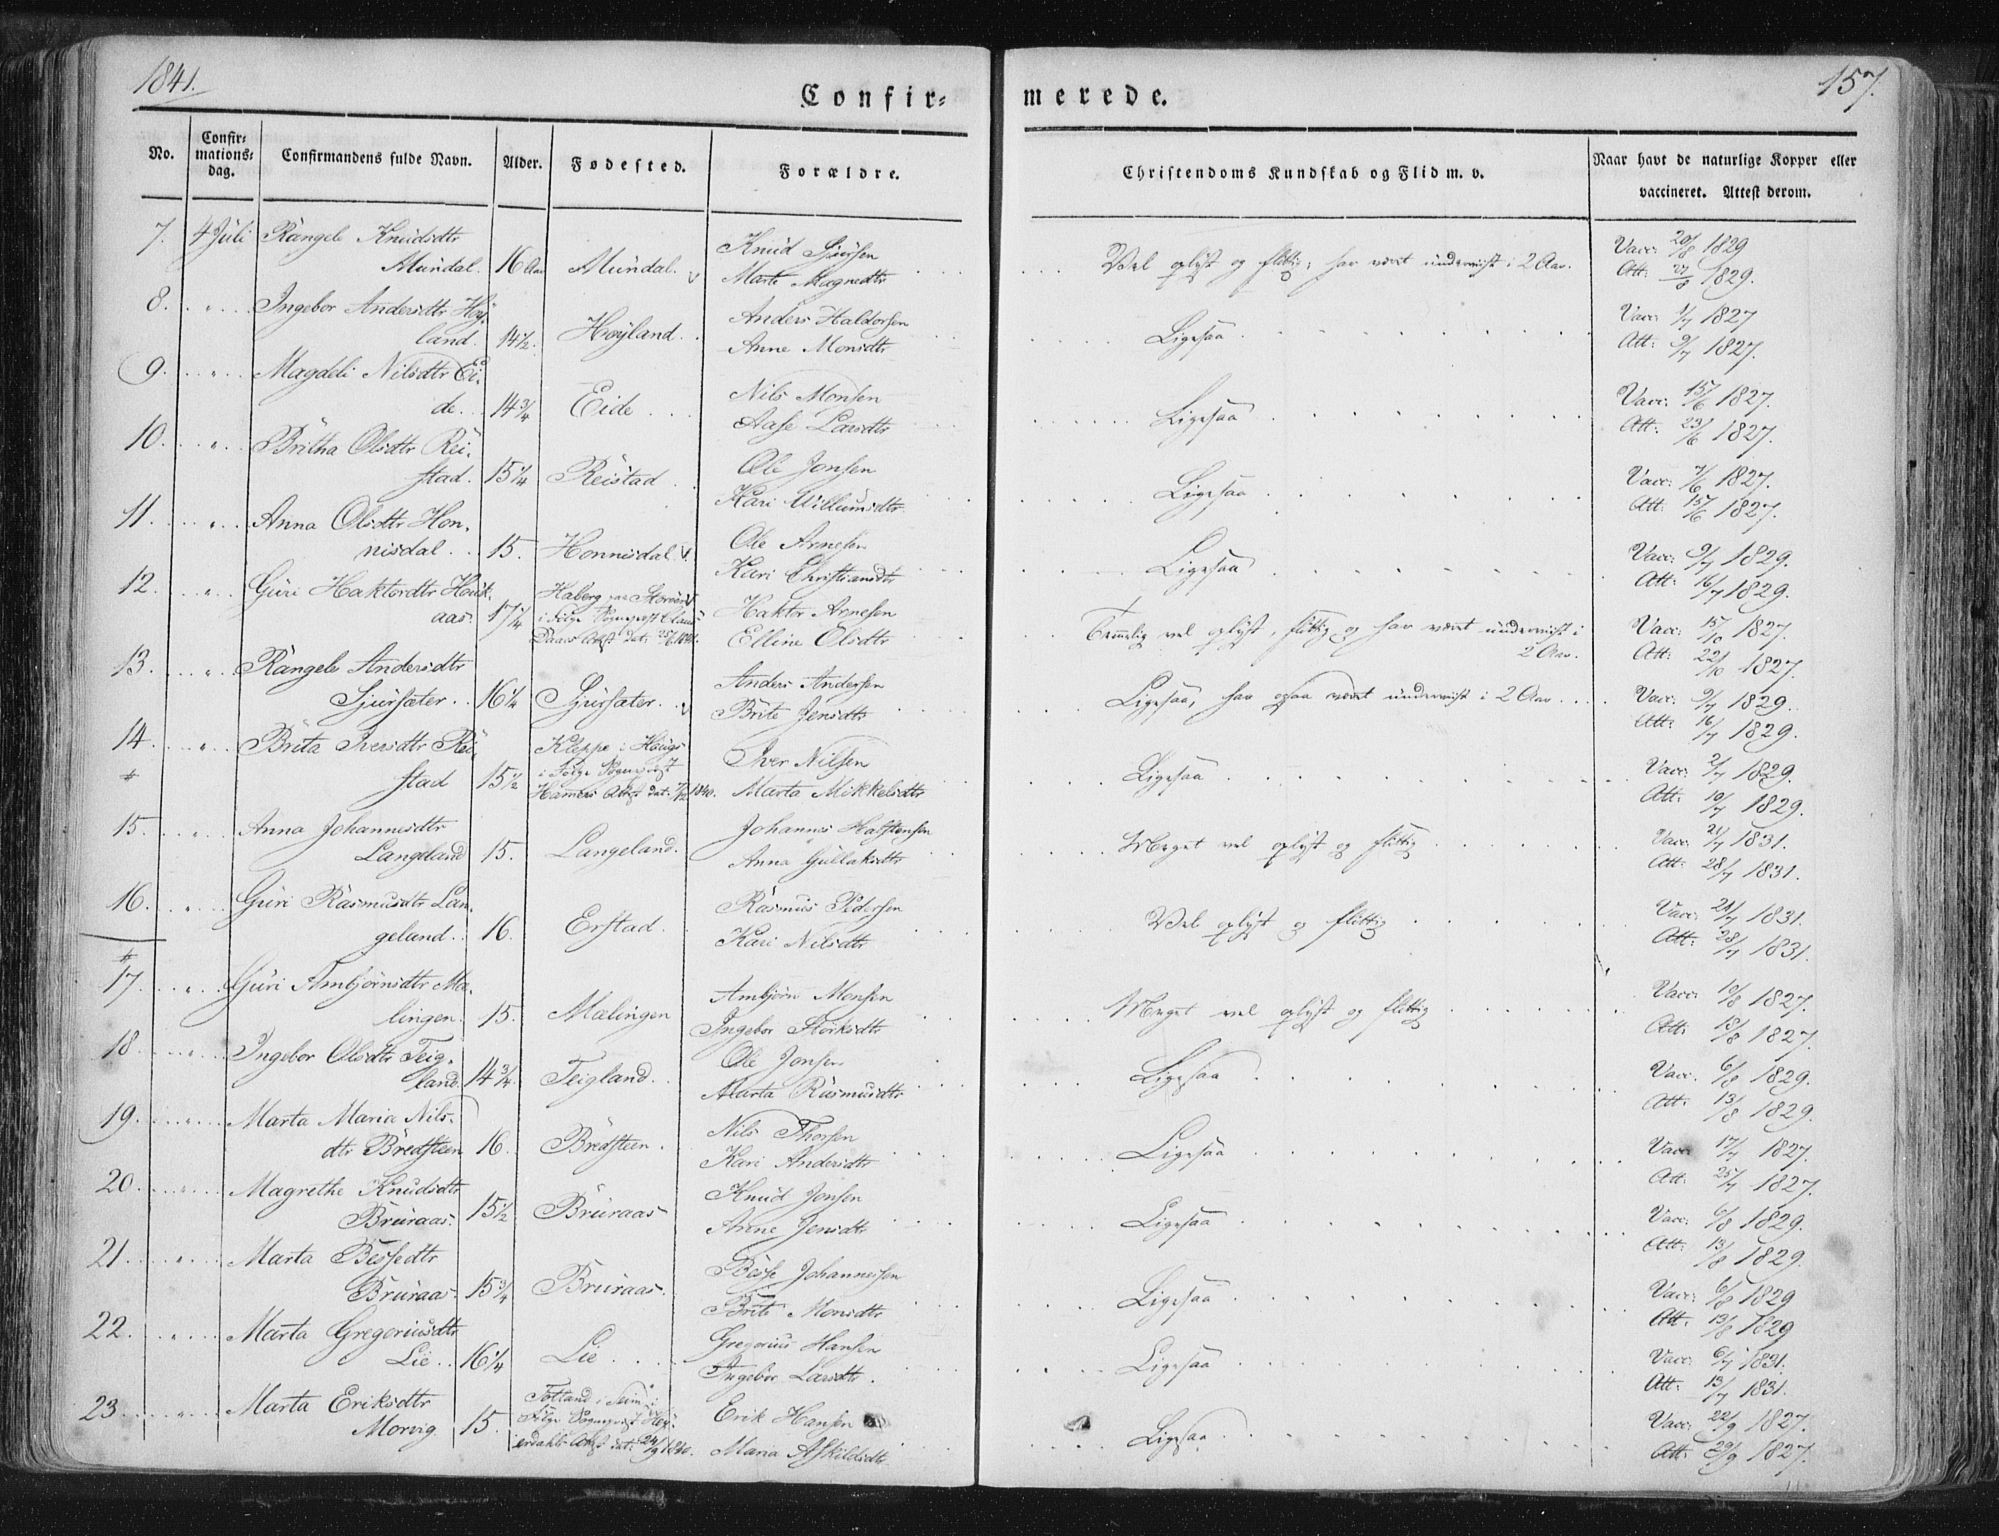 1841.
157.
Confir= merede.
No.
Confir=
mations=
dag.
Confirmandens fulde Navn.
Alder.
Fødested.
Forældre.
Christendoms Kundskab og Flid m. v.
Naar havt de naturlige Kopper eller
vaccineret. Attest derom.
7. 4 Juli Rangele Knudsdtr Knud Sjursen Vacc: 20/8 1829
Mundal. 16 Aar Mundal. Marte Magnedtr Vel oplyst og flittig, har været underviist i 2 Aar. Att: 27/8 1829.
8. " Ingebor Andersdtr Høy- Anders Haldorsen Vacc: 1/7 1827
land. 14 1/2. Høyland. Anne Monsdtr Ligesaa Att: 9/7 1827.
9. " Magdeli Nilsdtr Ei- Nils Monsen Vacc: 15/6 1827.
de. 14 3/4 Eide Aase Larsdtr Ligesaa Att: 23/6 1827.
10. " Britha Olsdtr Rei- Ole Jonsen Vacc: 7/6 1827.
stad. 15 1/4 Reistad Kari Willumsdtr Ligesaa Att: 15/6 1827.
11. " Anna Olsdtr Hon- Ole Arnesen Vacc: 9/7 1829.
nisdal. 15. Honnisdal Kari Christiansdtr Ligesaa Att: 16/7 1829.
12. " Guri Haktordtr Hauk- Haberg Haktor Arnesen Vacc: 15/10 1827.
aas. 17 1/4 i Følge Sogneprest Claus Temmelig vel oplyst, flittig og har været underviist i
Daaes Attest dat: 25/6 1840. Elline Olsdtr 2 Aar. Att: 22/10 1827.
13. " Rangele Andersdtr Anders Andersen Vacc: 9/7 1829.
Sjursæter. 16 1/4 Sjursæter. Brite Jensdtr Ligesaa, har ogsaa været underviist i 2 Aar Att: 16/7 1829.
14. " Brita Iversdtr Rei- Kleppe i Haugs Iver Nilsen Vacc: 2/7 1829.
stad 15 1/2 i Følge Sogneprest Ligesaa
Hamers Attest dat: 1840. Marta Mikkelsdtr Att: 10/7 1829.
15. " Anna Johannesdtr Johannes Halstensen Vacc: 21/7 1831.
Langeland 15. Langeland. Anna Gullaksdtr Meget vel oplyst og flittig Att: 28/7 1831.
16. " Guri Rasmusdtr Lan- Rasmus Pedersen Vacc: 21/7 1831.
geland. 16. Erstad. Kari Nilsdtr Vel oplyst og flittig Att: 28/7 1831.
17. " Guri Ambjørnsdtr Mæ- Ambjørn Monsen Vacc: 10/8 1827.
lingen. 15. Mælingen Ingebor Størksdtr Meget vel oplyst og flittig Att: 18/8 1827.
18. " Ingebor Olsdtr Teig- Ole Jonsen Vacc. 6/8 1829.
land. 14 3/4. Teigland. Marta Rasmusdtr Ligesaa Att: 13/8 1829.
19. " Marta Maria Nils- Nils Thorsen Vacc: 17/7 1827.
dtr Bredsteen 16. Bredsteen. Kari Andersdtr Ligesaa Att: 25/7 1827.
20. " Magrethe Knudsdtr Knud Jonsen Vacc: 6/8 1829.
Bruraas. 15 1/2 Bruraas Anne Jensdtr Ligesaa Att: 13/8 1829.
21. " Marta Bessedtr Besse Johannessen Vacc: 6/8 1829
Bruraas. 15 3/4 Bruraas. Brite Monsdtr Ligesaa Att: 13/8 1829
22. " Marta Gregoriusdtr Gregorius Hansen Vacc: 6/7 1831.
Lie. 16 1/4 Lie. Ingebor Larsdtr. Ligesaa Att: 13/7 1831.
23. " Marta Eriksdtr Totland i Seim i Erik Hansen Vacc: 22/9 1827.
Morvig. 15. Følge Sogneprest Hey-
erdahls Attest dat: 24/9 1840. Maria Askildsdtr Ligesaa Att: 29/9 1827.